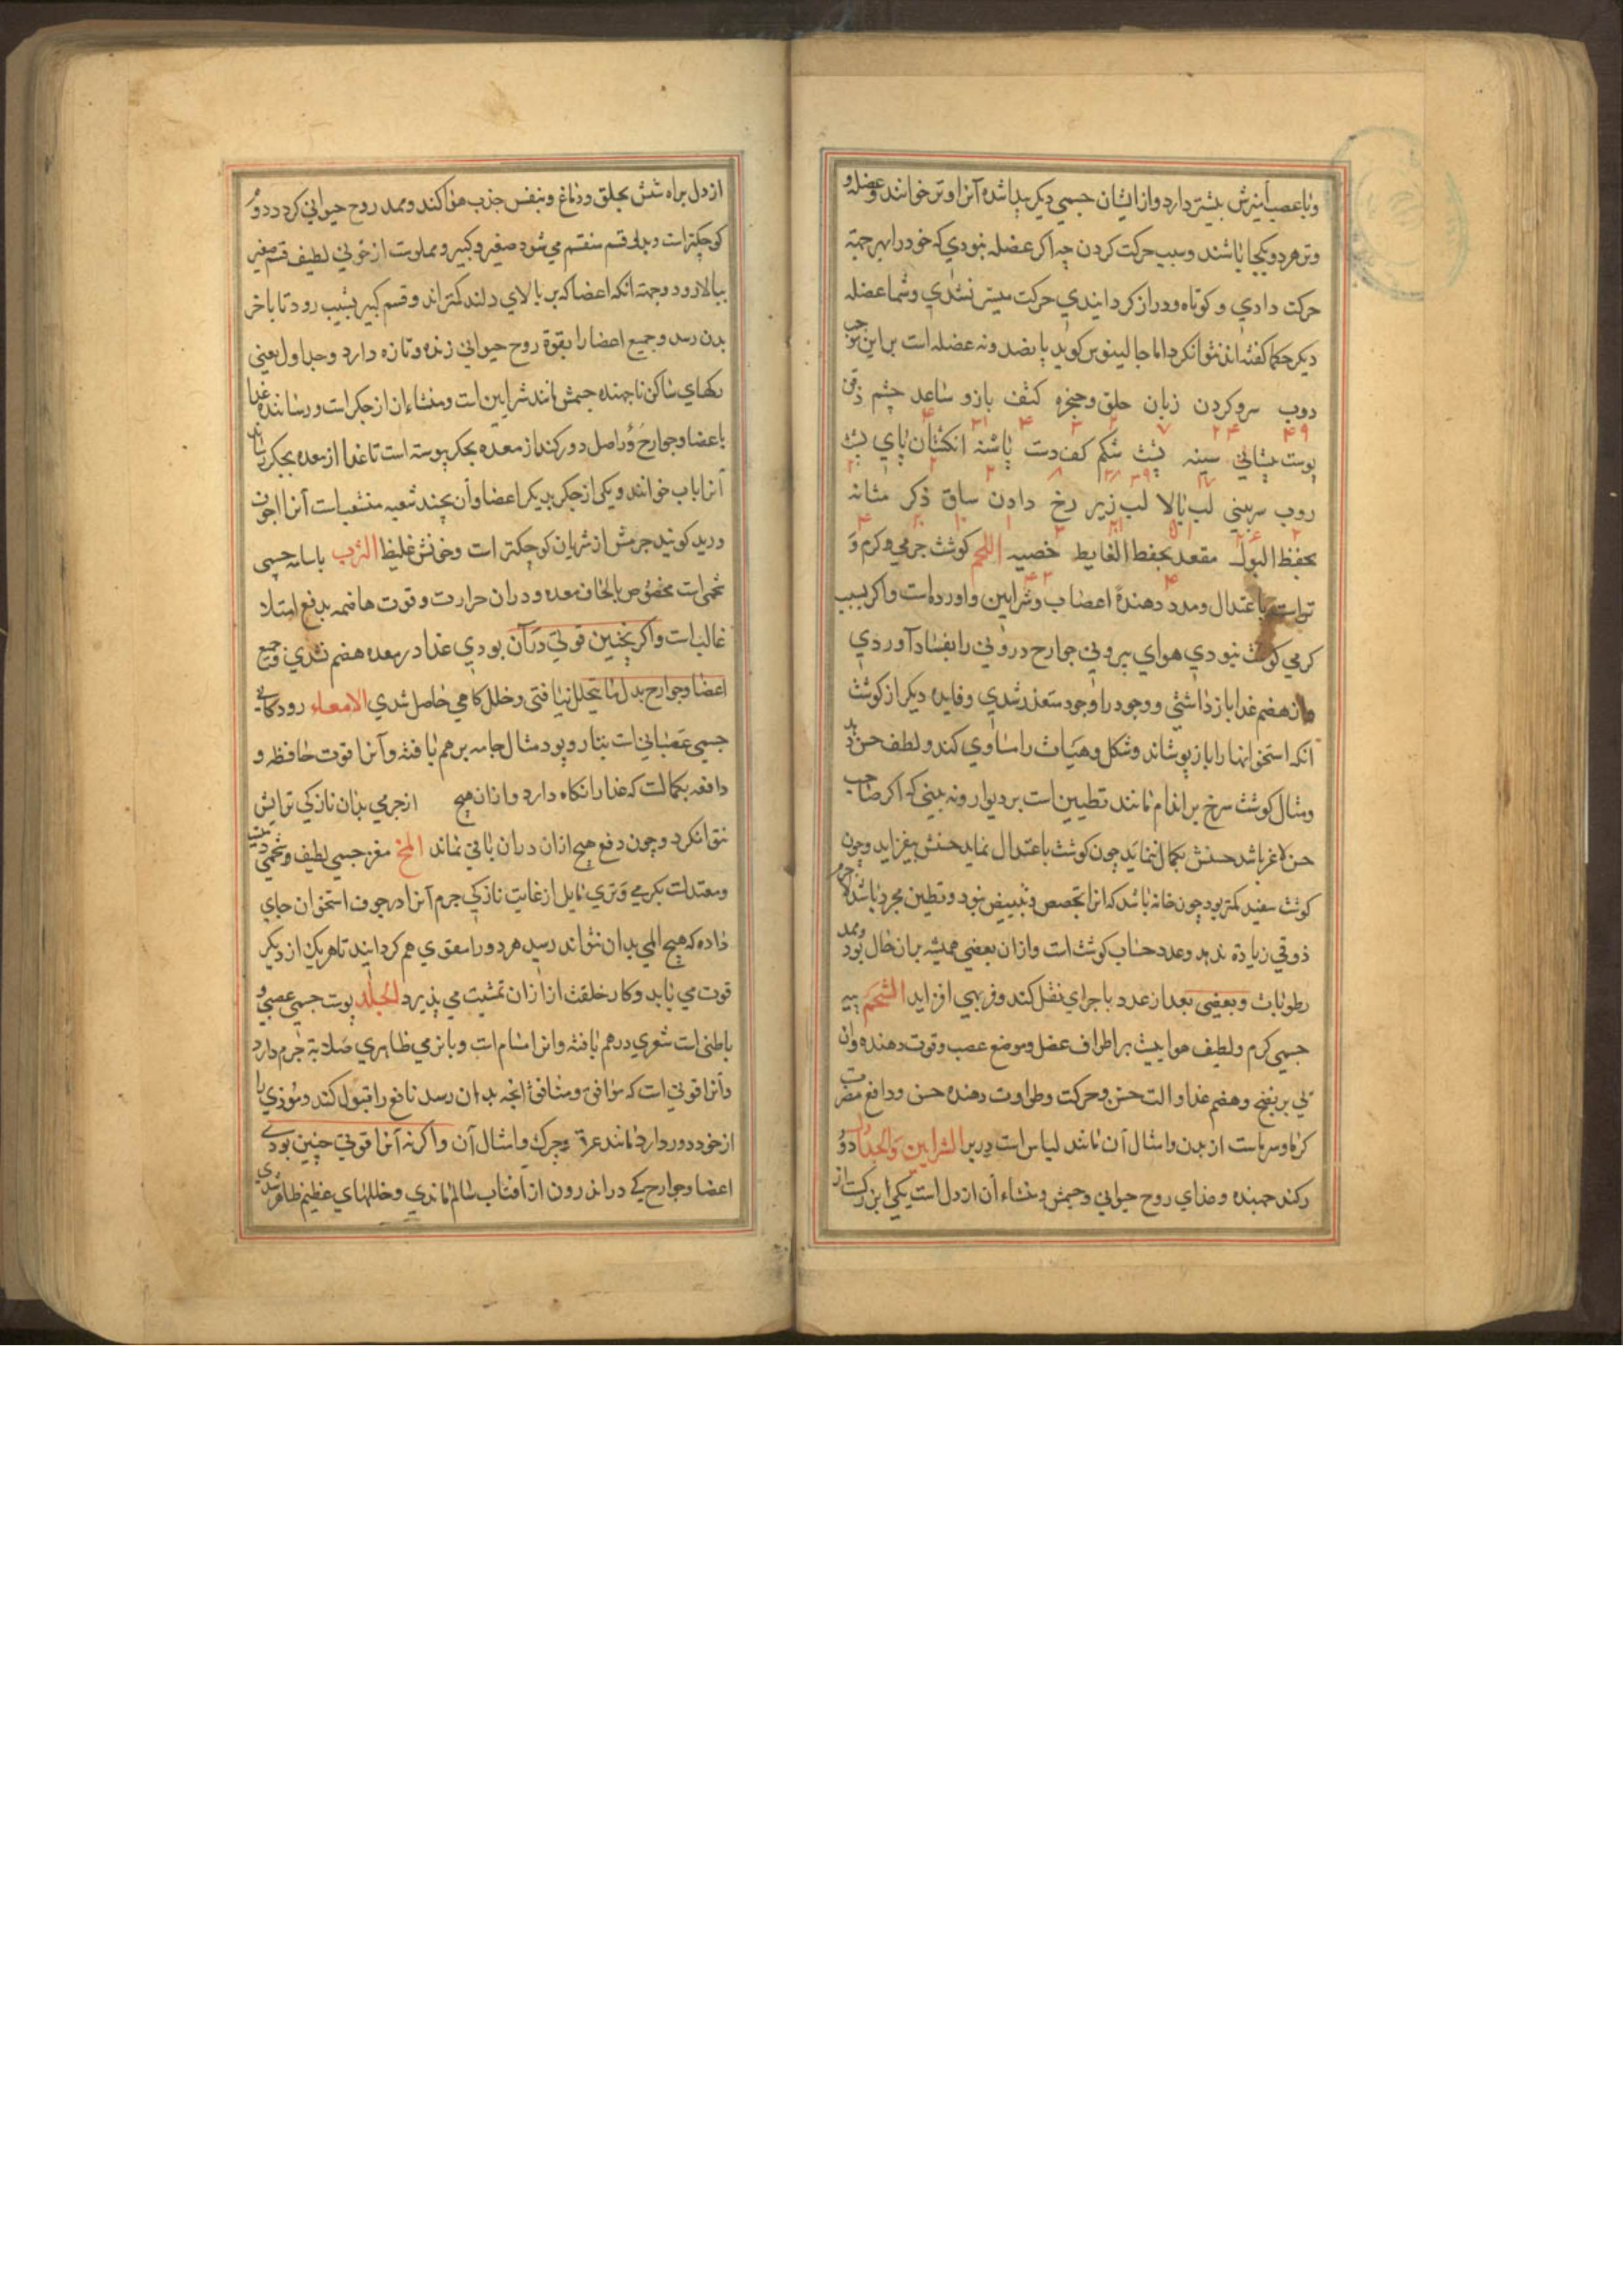 وبا عصب آمیزش بیشتر دارد و از ایشان جسمی دیکر پیدا شده آنرا وتر خوانند وعضله و
وتر هر دو یکجا باشند و سبب حرکت کردن چه اکر عضله نبودی که خود را بهر جهة
حرکت دادی و کوتاه و دراز کردانیدی حرکت میسر نشدی وشما عضله
دیکر حکما کفته اند نتوانکرد اما جالینوس کوید پانصد ونه عضله است براین موجب
دوب سر وکردن زبان حلق وحنجره کتف بازو ساعد چشم ذقن
پوست پیشانی سینه پشت شکم کف دست پاشنه انکشتان پای پشت
روب سر بینی لب بالا لب زیر رخ دادن ساق ذکر مثانه
بحفظ البول مقعد بحفظ الغایط خصیه اللحم کوشت جرمی وکرم و
تراست باعتدال ومدد دهندهٔ اعصاب وشرایین واورده است واکر بسبب
کرمی کوشت نبودی هوای بیرونی جوارح درونی را بفساد آوردی
واز هضم غدا باز داشتی و وجود را وجود متعذر شدی وفایده دیکر از کوشت
آنکه استخوانها را باز پوشاند وشکل وهیات را مساوی کند ولطف حسن دهد
ومثال کوشت سرخ بر اندام مانند تطیین است بر دیوار ونه بینی که اکر صاحب
حسن لاغر باشد حسنش بکمال ننماید چون کوشت باعتدال نماید حسنش بیفزاید وچون
کوشت سفید کمتر بود چون خانه باشد که انرا تجصص وتبییض نبود وتطین مجرد باشد لاجرم
ذوقی زیادة ندهد وعدد حساب کوشت است وازان بعضی همیشه بر آن حال بود وممد
رطوبات وبعضی بعد از عدد باجرای نقل کند وفربهی افزاید الشحم پیه
جسمی کرم ولطیف هواییت بر اطراف عضل وموضع عصب وقوت دهنده وان
نی بر نفج وهضم غدا والت حسن وحرکت وطراوت دهنده حسن ودافع مضرت
کرما وسرماست از بدن وامثال آن مانند لباس است دربر الشرایین والجداول دو
رکند جهنده وغذای روح حیوانی وجسمش ومنشاء آن از دل است یکی بزرکست از
از دل براه شش بحلق ودماغ وبنفس جذب هوا کند وممد روح حیوانی کردد ودو
کوچکتر است وبدو قسم منقسم می شود صغیر وکبیر ومملوست از خونی لطیف قسم صغیر
ببالا رود وجهة انکه اعضا که بر بالای دلند کمتراند وقسم کبیر بشیب رود تا باخر
بدن رسد وجمیع اعضا را بقوة روح حیوانی زنده وتازه دارد وجداول یعنی
رکهای ساکن ناجهنده جسمش مانند شرایین است ومنشاء ان از جکر است ورساننده غدا
باعضا وجوارح و اصل دور کند از معده بجکر پیوسته است تا غدا از معده بجکر رساند
آنرا باب خوانند ویکی از جکر بدیکر اعضا وآن بچند شعبه منشعب است آنرا اجوف
ورید کویند جرمش از شریان کوچکتر است وخونش غلیظ الثرب باسانه جسمی
شحمی است مخصوص بالحاف معده ودران حرارت وقوت هاضمه بدفع امتلا
غالبات واکر نچنین قوتی در آن بودی غدا در معده هضم نشدی وجمیع
اعضا وجوارح بدل ما یتحلل نیافتی وخلل کاهی حاصل شدی الامعاء رودکانی
جسمی عصبانی است بتار وپود مثال جامه بر هم بافته وآنرا قوت حافظه و
دافعه بکمالست که غدا را نکاه دارد وازان هیچ از جرمی بدان نازکی ترایش
نتوانکرد وچون دفع هیچ ازان دران باقی نماند المخ مغز جسمی لطیف وشحمی
ومعتدلست بکرمی وتری مایل از غایت نازکی جرم آنرا در جوف استخوان جای
داده که هیچ المی بدان نتواند رسید هر دو را مقوی هم کردانید تا هر یک از دیکر
قوت می یابد وکار خلقت ازان تمشیت می پذیرد الجلد پوست جسمی عصبی و
باطنی است شعری درهم بافته وانرا مسام است وبا نرمی ظاهری صلابة جرم دارد
وآنرا قوتی است که موافق ومنافق انچه بدان رسد نافع را قبول کند ومؤذی را
از خود دور دارد مانند عرق وچرک وامثال آن واکر نه آنرا قوتی چنین بودی
اعضا وجوارح که در اندرون از افتاب سالم نماندی وخللهای عظیم ظاهر شدی